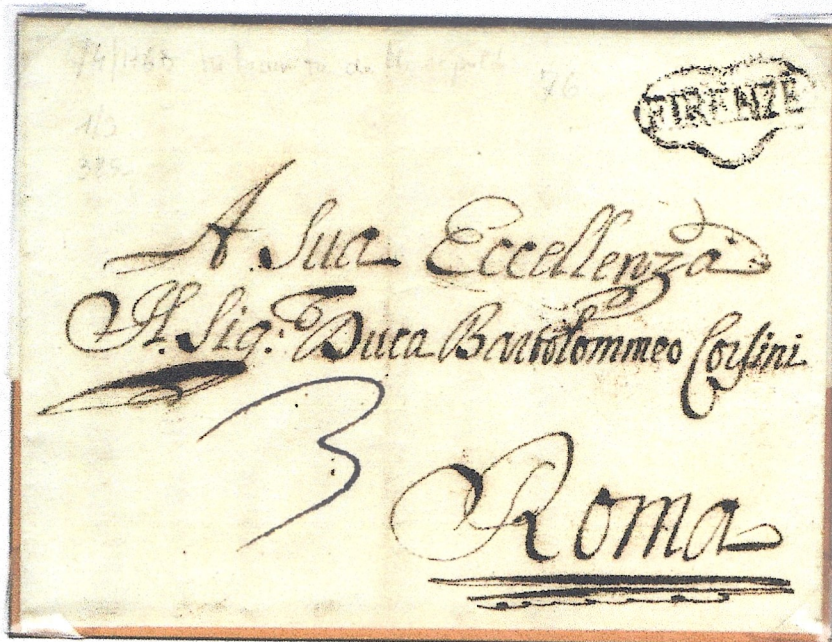 76
FIRENZE
1/3
A Sua Eccellenza
Il Sig:re Duca Bartolommeo Corsini
3
Roma